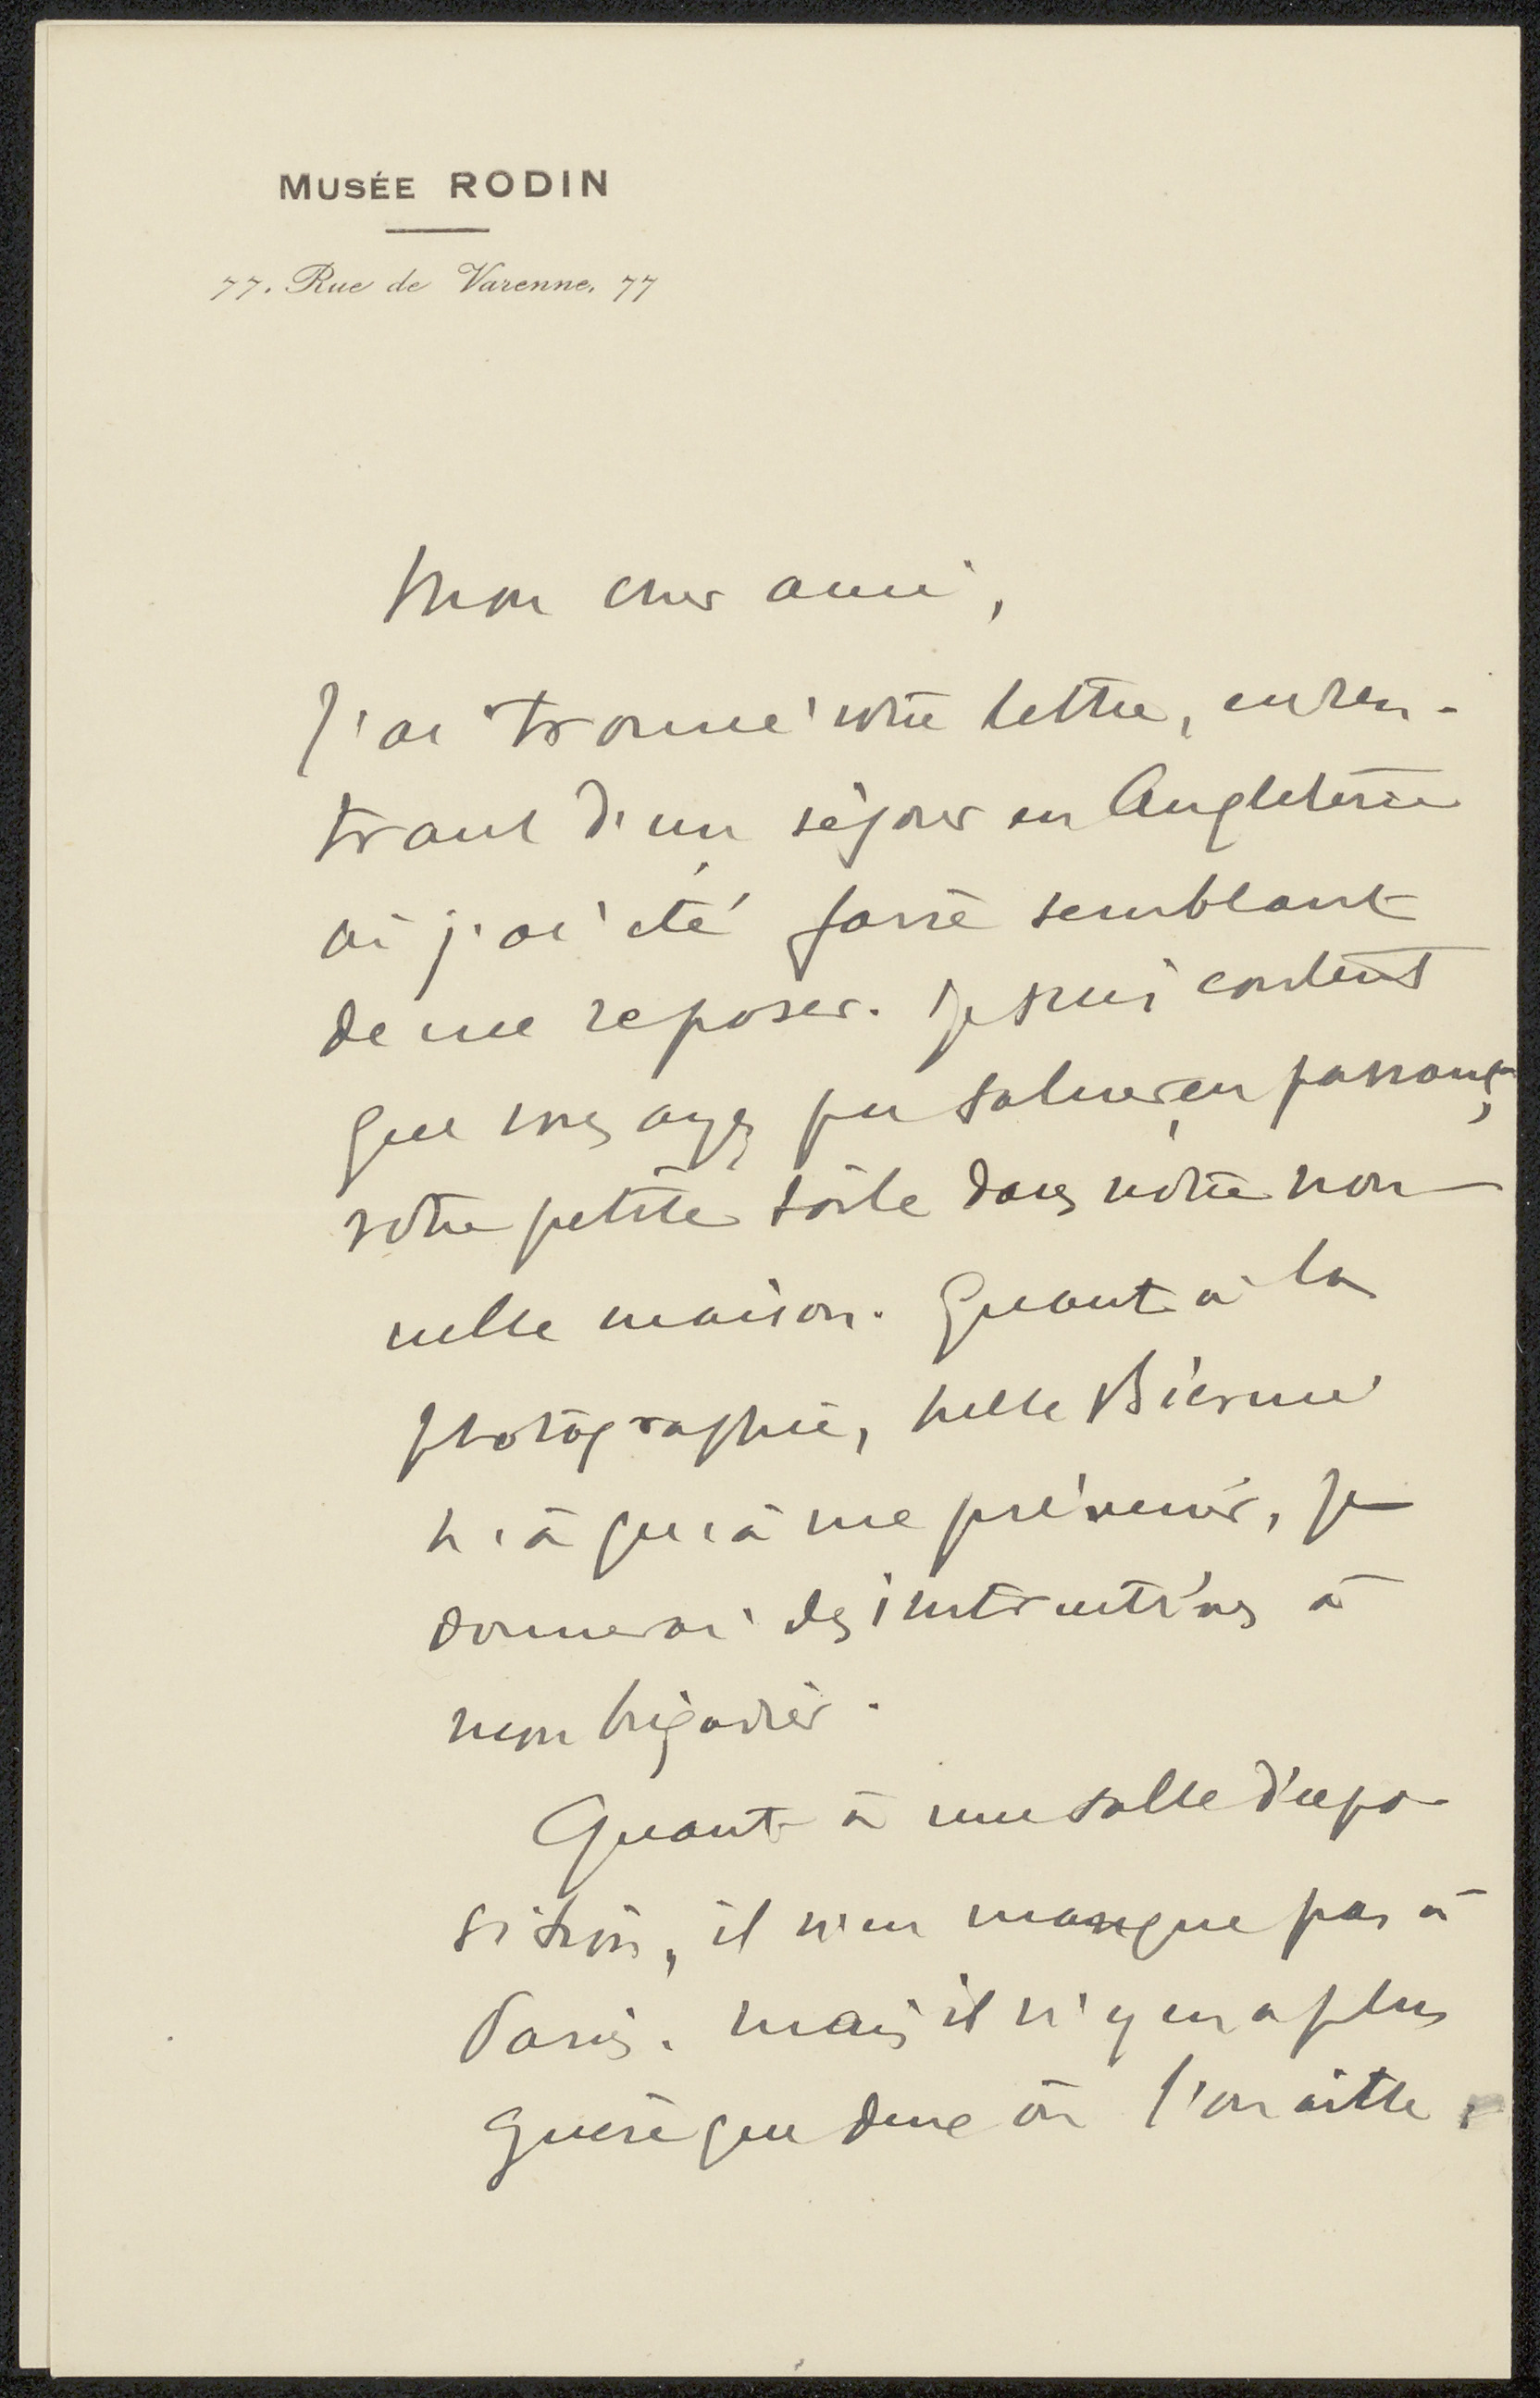 MUSÉE RODIN
77. Rue de Varenne. 77
Mon cher ami,
J'ai trouvé votre lettre, en ren-
trant d'un séjour en Angleterre
où j'ai été faire semblant
de me reposer. Je suis content
que vous ayez pu saluer, en passant,
votre petite toile dans notre nou-
velle maison. Quant à la
photographie, Melle
n'a qu'à me prévenir, je
donnerai des instructions à
mon brigadier.
Quant à une salle d'expo-
sition, il n'en manque pas à
Paris. Mais il n'y en a plus
guère que deux où l'on aille,